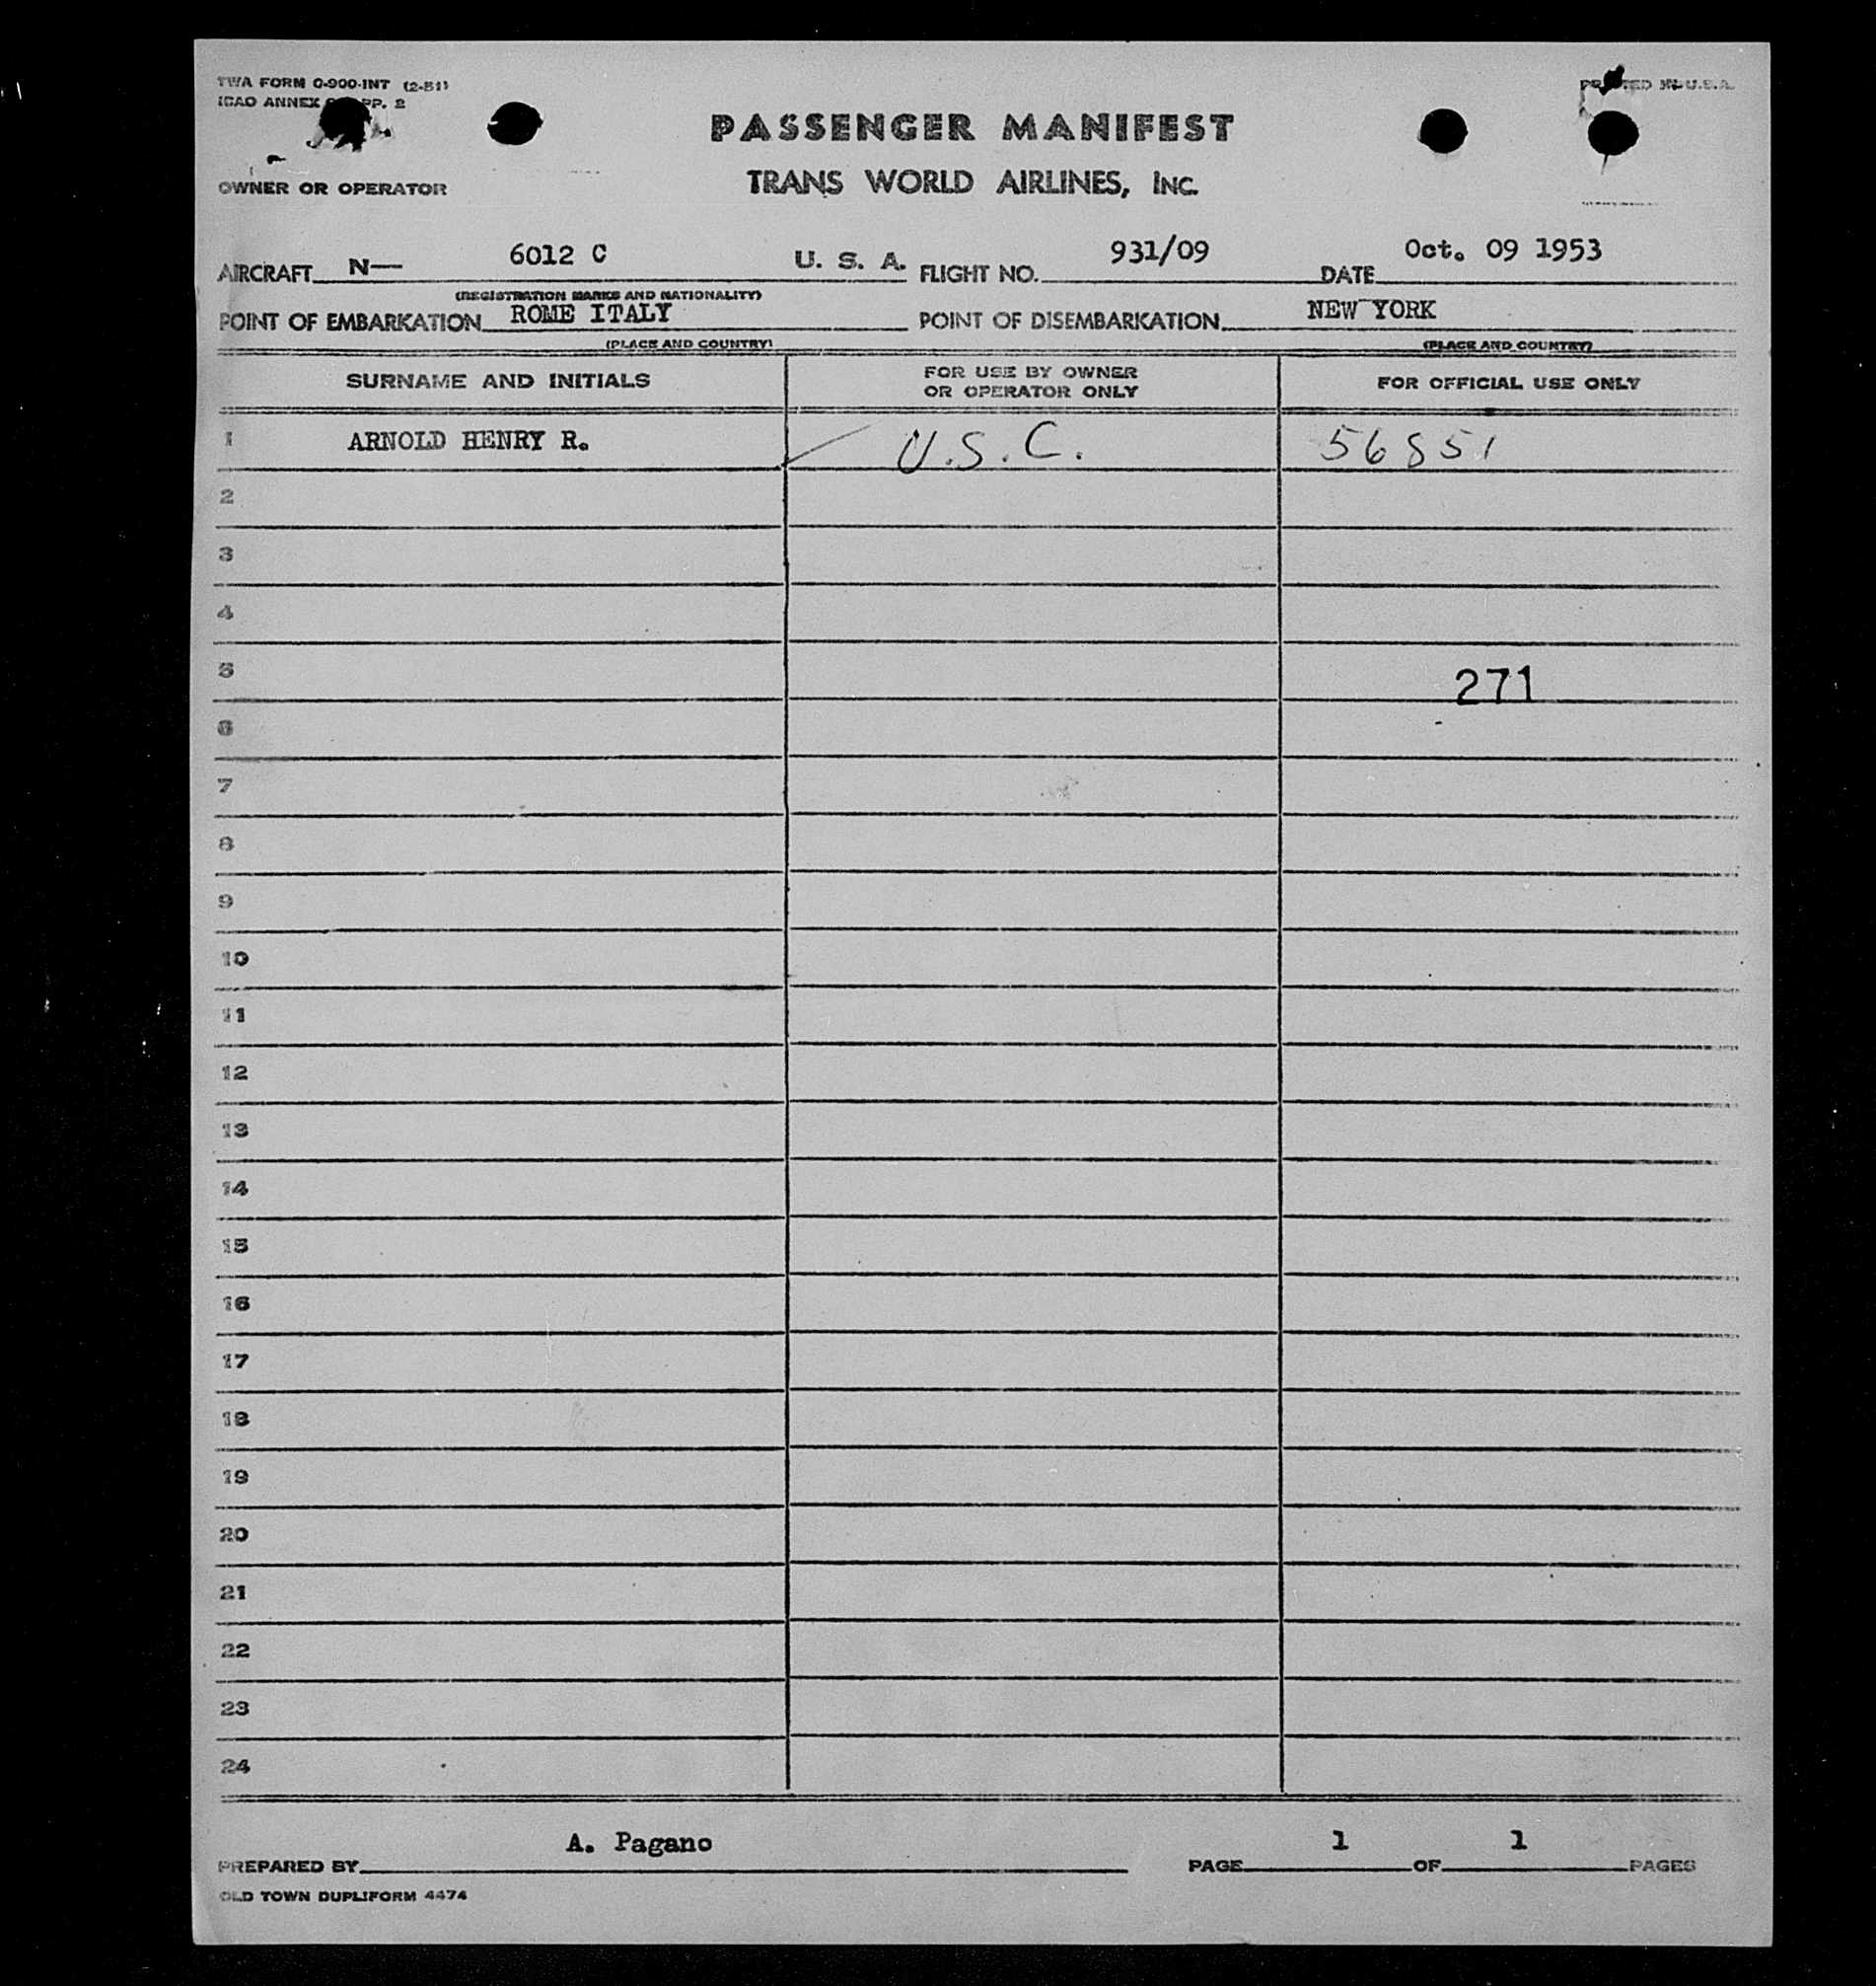 TWA FORM O-900-INT (2-51)
ICAO ANNEX PP. 2
PRINTED IN U.S.A.
PASSENGER MANIFEST
TRANS WORLD AIRLINES, INC.
OWNER OR OPERATOR
AIRCRAFT N— 6012 C U. S. A. FLIGHT NO. 931/09 DATE Oct. 09 1953
(REGISTRATION MARKS AND NATIONALITY)
POINT OF EMBARKATION ROME ITALY POINT OF DISEMBARKATION NEW YORK
(PLACE AND COUNTRY) (PLACE AND COUNTRY)
SURNAME AND INITIALS FOR USE BY OWNER OR OPERATOR ONLY FOR OFFICIAL USE ONLY
1 ARNOLD HENRY R. U.S.C. 56851
2
3
4
5 271
6
7
8
9
10
11
12
13
14
15
16
17
18
19
20
21
22
23
24
PREPARED BY A. Pagano PAGE 1 OF 1 PAGES
OLD TOWN DUPLIFORM 4474